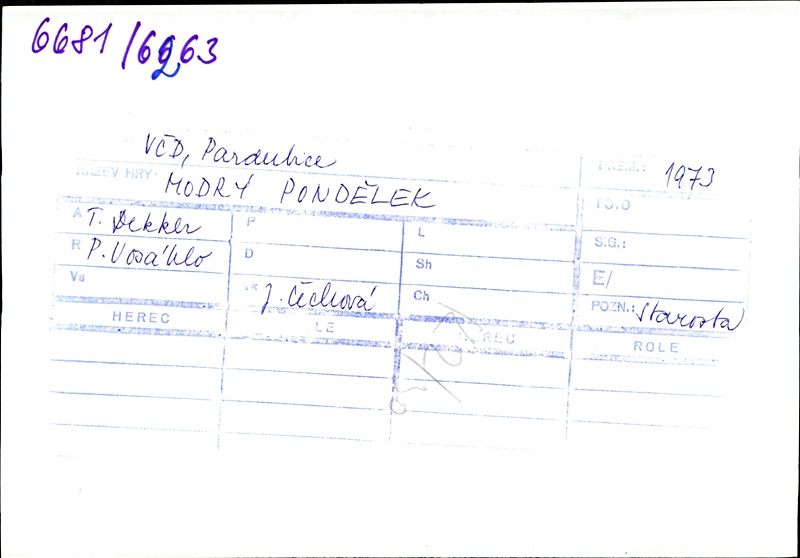 6681/6263
VČD, Pardubice
NÁZEV HRY: MODRÝ PONDĚLEK
PREM.: 1973
FOTO
A T. Dekker
P
L
S.G.:
R P. Vosáhlo
D
Sh
E/
Vs
VK J. Čechová
Ch
POZN.: Starosta
HEREC
LE
REC
ROLE